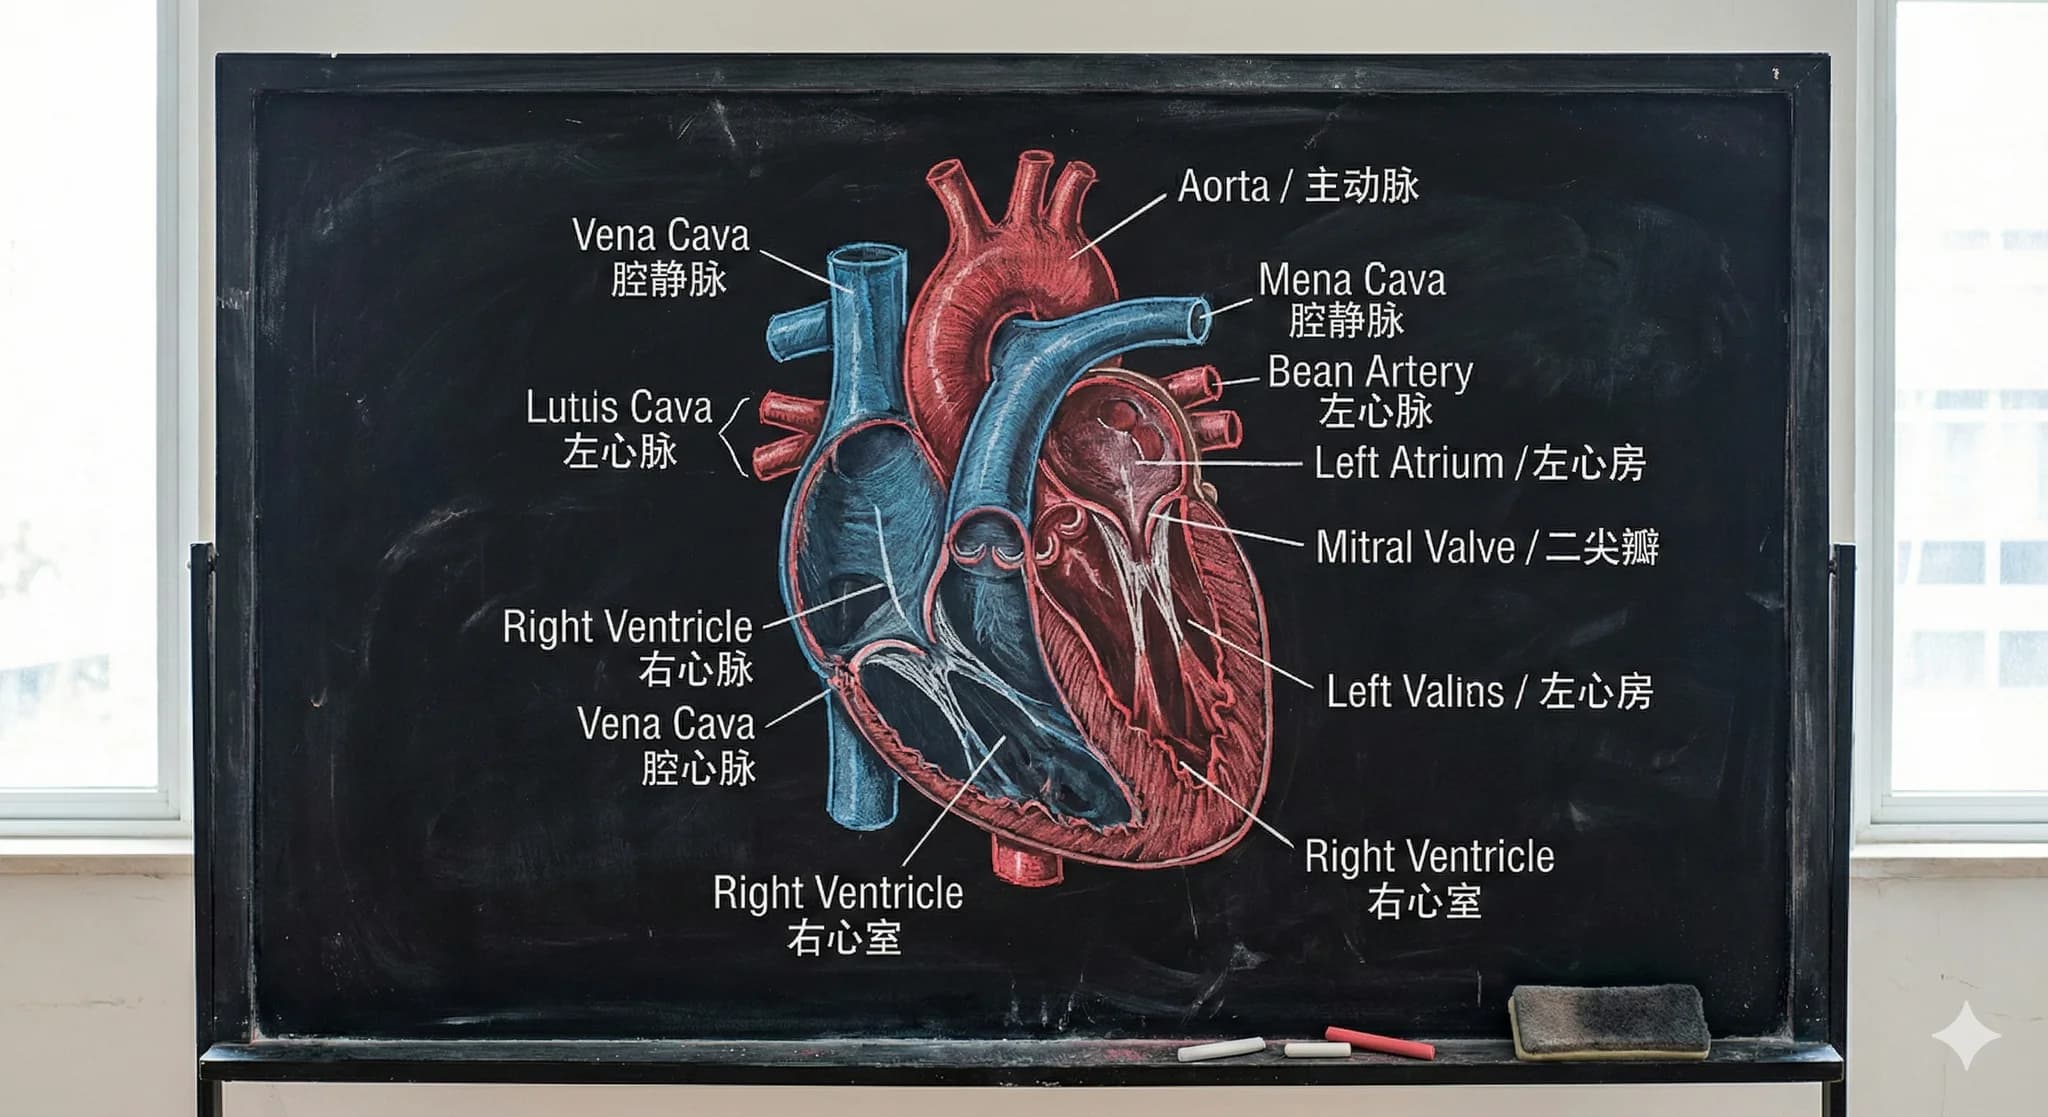 Vena Cava
腔静脉
Lutus Cava
左心脉
Right Ventricle
右心脉
Vena Cava
腔心脉
Right Ventricle
右心室
Aorta / 主动脉
Mena Cava
腔静脉
Bean Artery
左心脉
Left Atrium / 左心房
Mitral Valve / 二尖瓣
Left Valins / 左心房
Right Ventricle
右心室